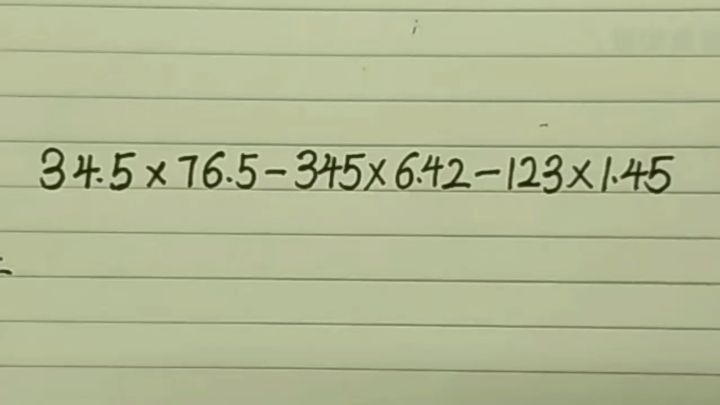 34.5×76.5-345×6.42-123×1.45